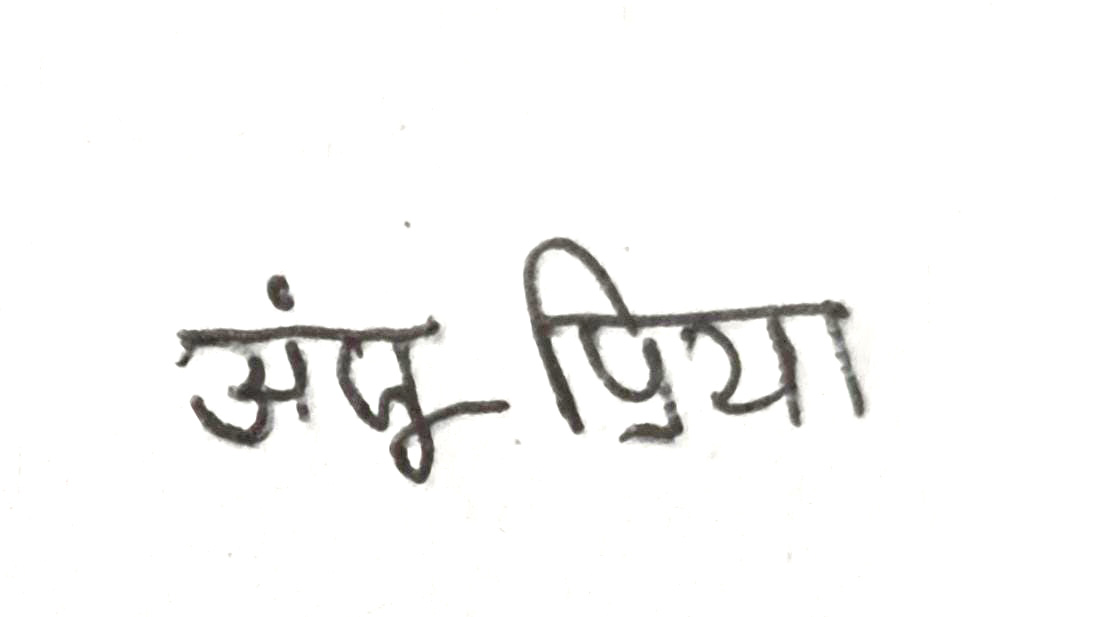 अंजू प्रिया